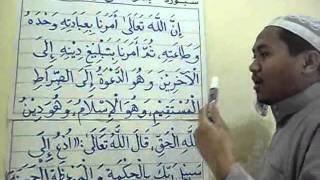 إِنَّ اللَّهَ تَعَالَى أَمَرَنَا بِعِبَادَتِهِ وَحْدَهُ
وَطَاعَتِهِ، ثُمَّ أَمَرَنَا بِتَبْلِيغِ دِينِهِ إِلَى
الْآخَرِينَ، وَهُوَ الدَّعْوَةُ إِلَى الصِّرَاطِ
الْمُسْتَقِيمِ، وَهُوَ الْإِسْلَامُ، وَهُوَ دِينُ
اللَّهِ الْحَقُّ، قَالَ اللَّهُ تَعَالَى: «ادْعُ إِلَى
سَبِيلِ رَبِّكَ بِالْحِكْمَةِ وَالْمَوْعِظَةِ الْحَسَنَةِ